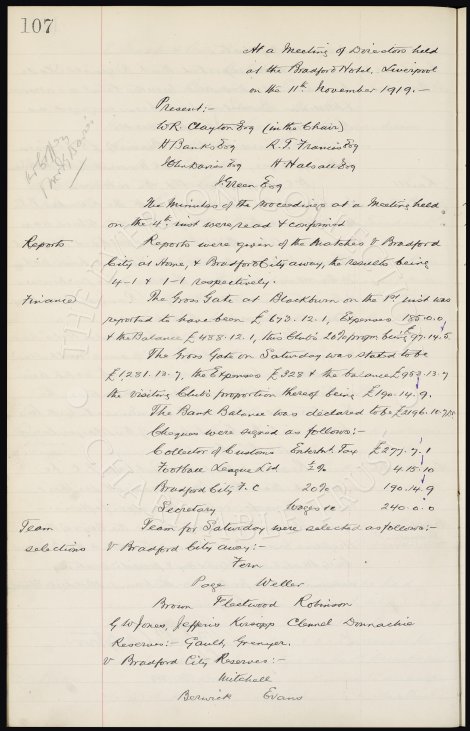 107
At a Meeting of Directors held
at the Bradford Hotel, Liverpool
on the 11th November 1919.-
Present:-
W.R. Clayton Esq (in the Chair)
W Banks Esq R.T. Francis Esq
John Davies Esq H Halsall Esq
J. Green Esq
The Minutes of the proceedings at a Meeting held
on the 4th inst were read & confirmed
Reports Reports were given of the Matches V Bradford
City at Home, & Bradford City away, the results being
4-1 & 1-1 respectively.
Finance The Gross Gate at Blackburn on the 1st inst was
reported to have been £673.12.1, Expenses 185.0.0
& the Balance £488.12.1, this Club's 20% propn being £97.14.5.
The Gross Gate on Saturday was stated to be
£1,281.13.7, the Expenses £328 & the balance £953.13.7
the visiting Club's proportion thereof being £190.14.9.
The Bank Balance was declared to be £3196.10.7
Cheques were signed as follows:-
Collector of Customs Entertnt. Tax £277.7.1
Football League Ltd ½% 4.15.10
Bradford City F.C 20% 190.14.9
Secretary Wages &c 240.0.0
Team Team for Saturday were selected as follows:-
selections V Bradford City away:-
Fern
Page Weller
Brown Fleetwood Robinson
G W Jones, Jefferis Kirsopp Clennel Donnachie
Reserves:- Gault, Grenyer.
V Bradford City Reserves:-
Mitchell
Berwick Evans